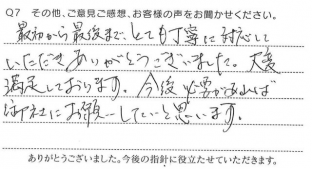 Q7 その他、ご意見ご感想、お客様の声をお聞かせください。
最初から最後まで、とても丁寧に対応して
いただきありがとうございました。大変
満足しております。今後必要があれば
御社にお願いしたいと思います。
ありがとうございました。今後の指針に役立たせていただきます。